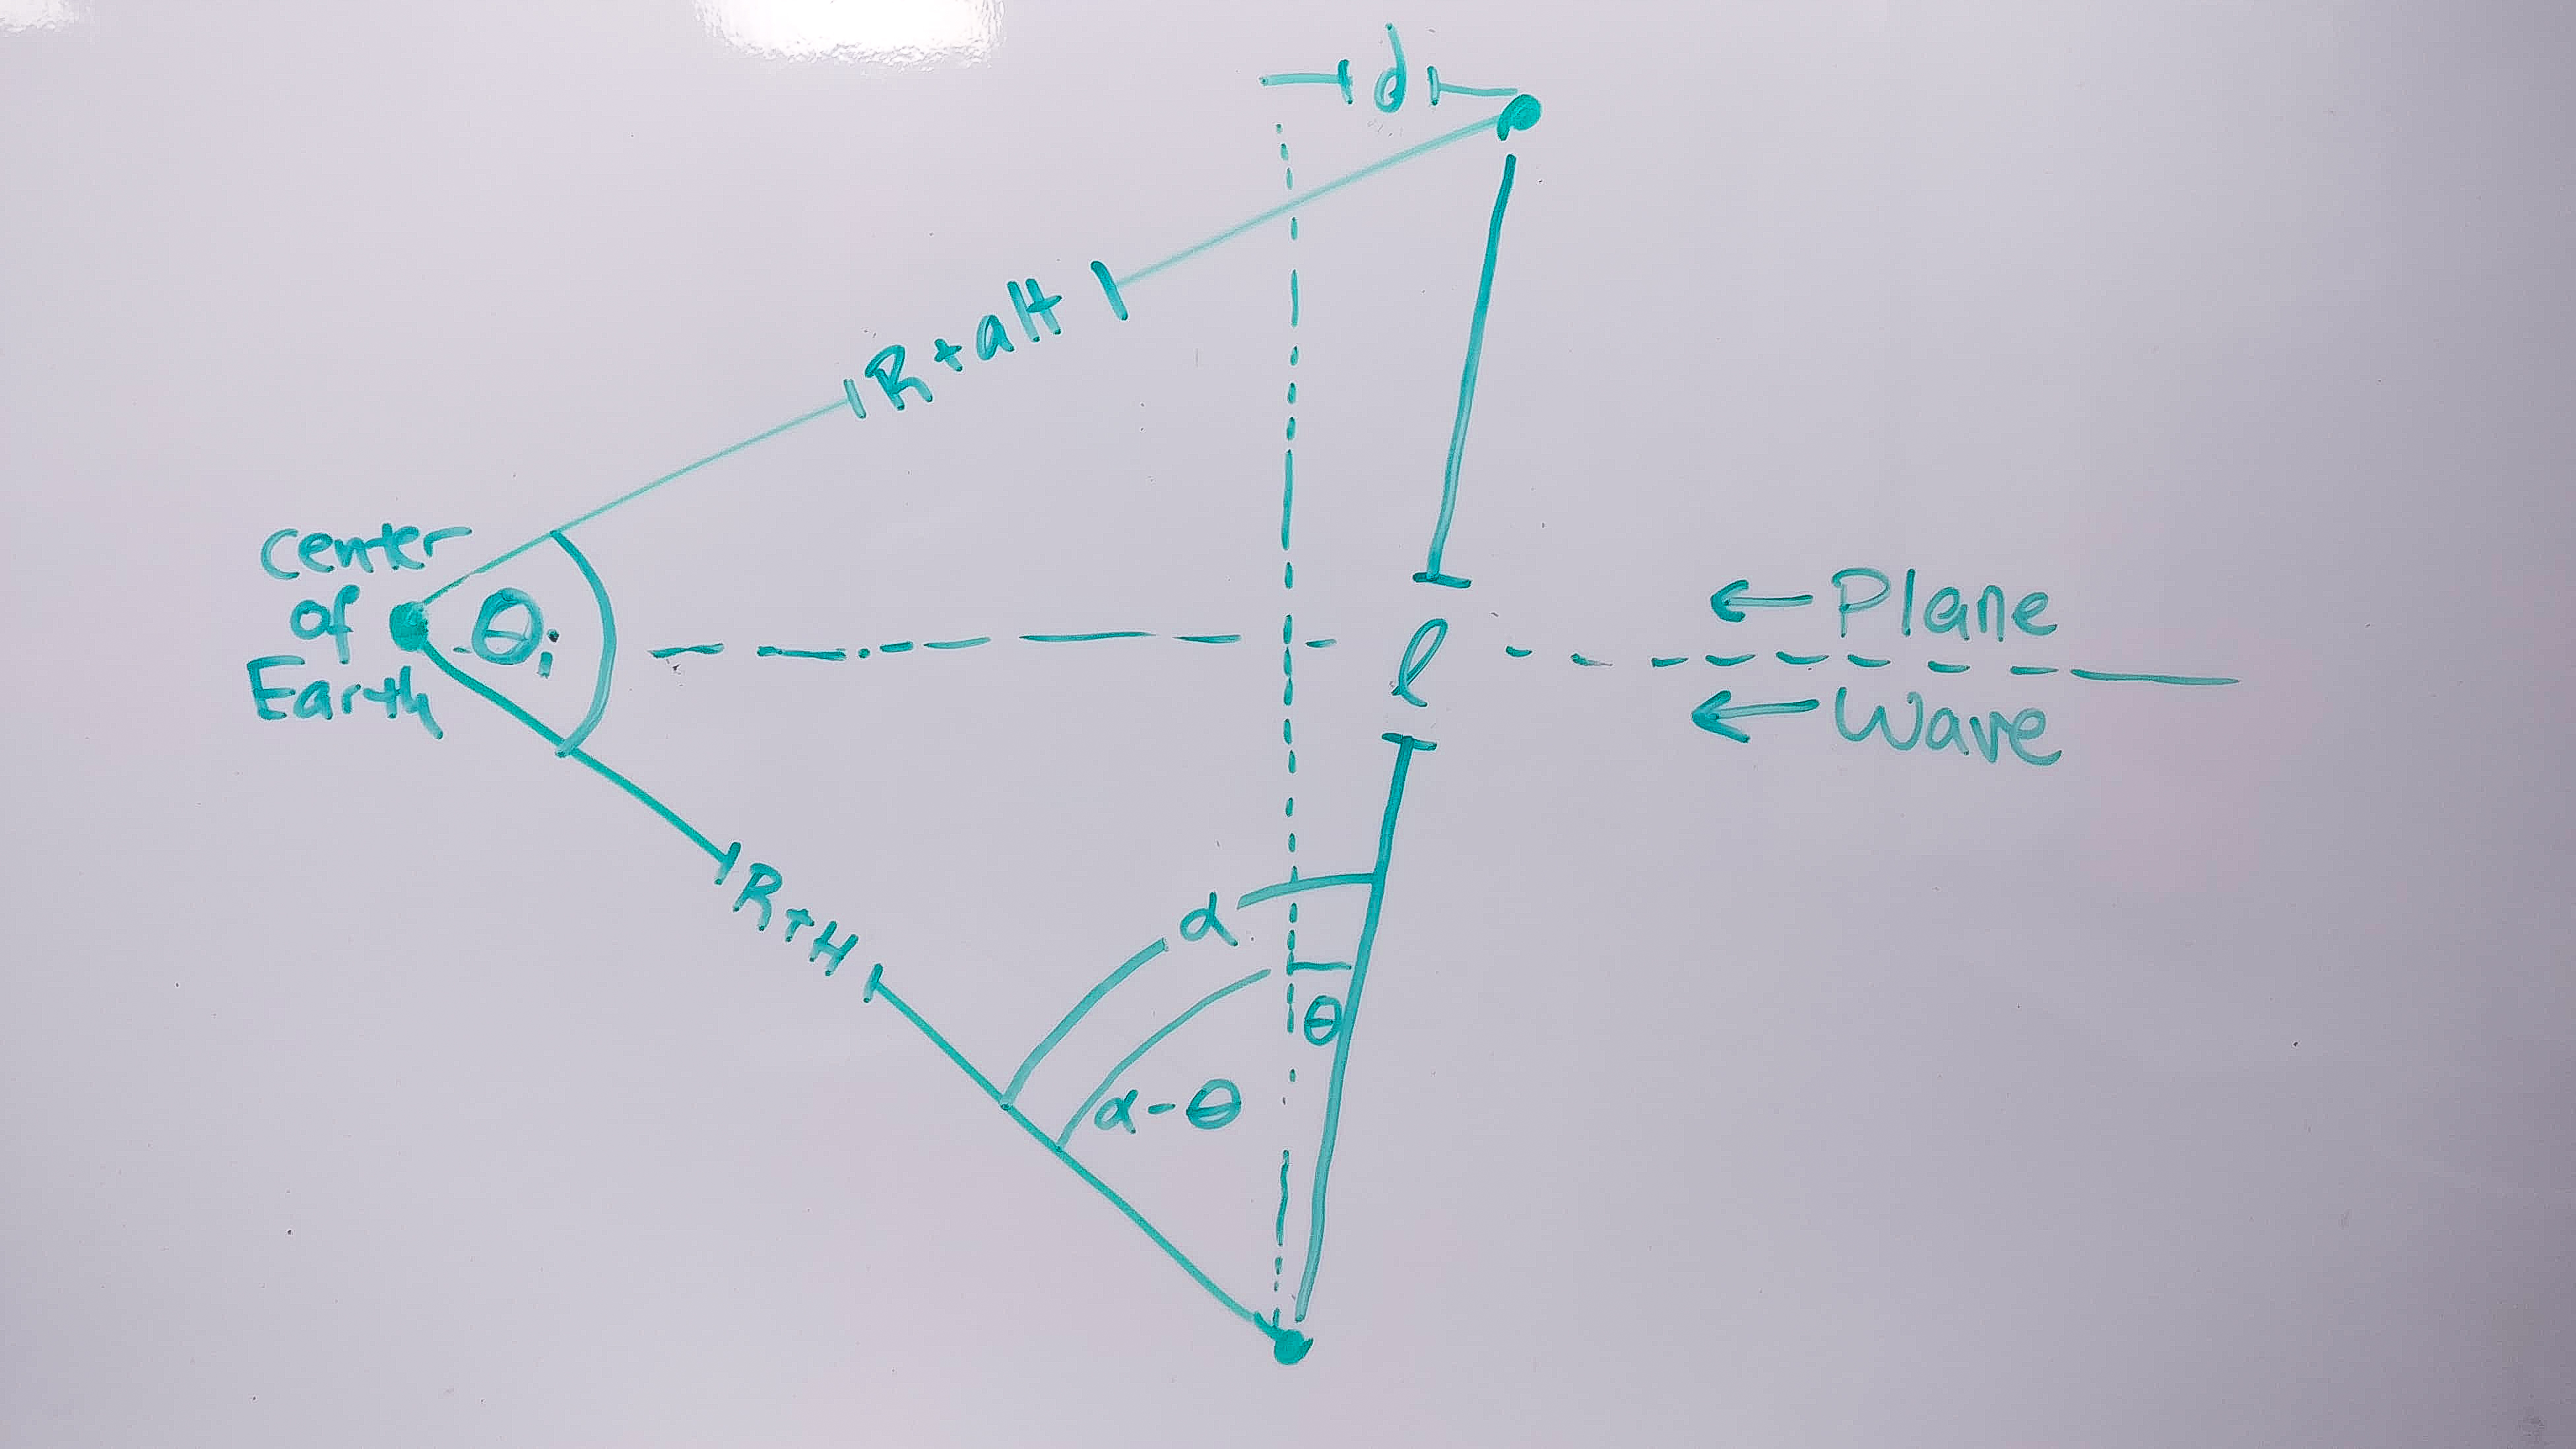 d
R + alt
center
of
Earth
Θi
l
← Plane
← Wave
R+H
α
θ
α-θ